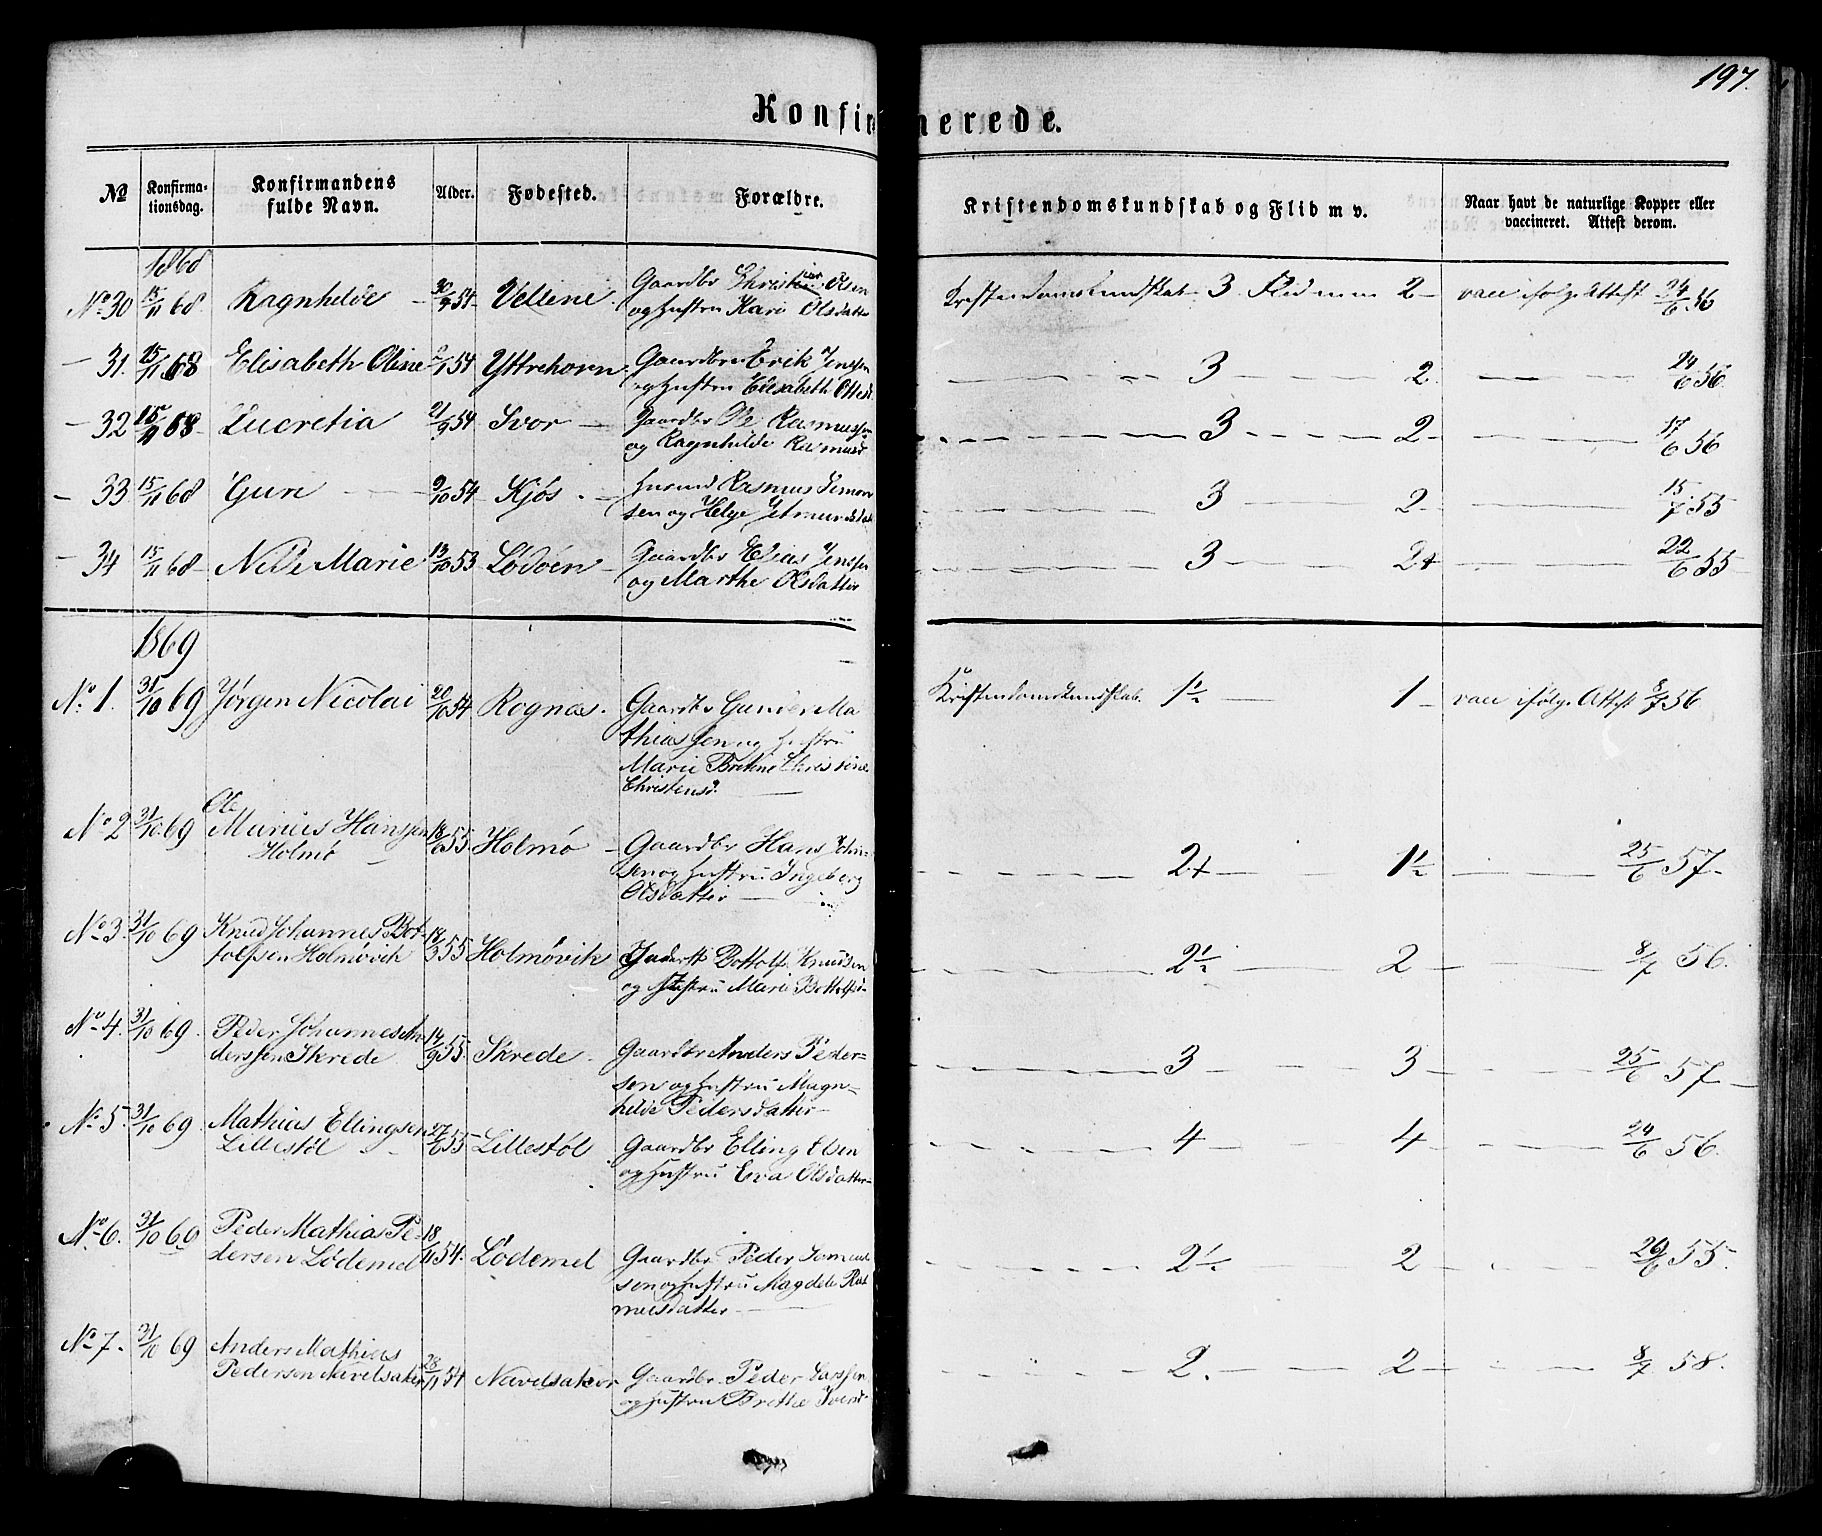 197.
Konfirmerede.
No Konfirmationsdag. Konfirmandens fulde Navn. Alder. Fødested. Forældre. Kristendomskundskab og Flid m v. Naar havt de naturlige Kopper eller vaccineret. Attest derom.
1868
No 30 15/11 68. Ragnhilde 30/9 54 Velline Gaardbr Christian Olsen Kristendomskundskab 3 Flid m m 2 - vacc ifølge Attest 24/6 56
og Hustru Kari Olsdatter
- 31. 15/11 68 Elisabeth Oline /1 54 Yttrehorn Gaardbr Erik Jenssen 3 2. 24/6 56.
og Hustru Elisabeth Ottesd
- 32 15/11 68 Lucretia 21/9 54 Svor Gaardbr Ole Rasmussen 3 2 17/6 56
og Ragnhilde Rasmusd
- 33 15/11 68 Guri 9/10 54 Kjøs Husmd Rasmus Simon 3 2 15/7 55
sen og Helge Jetmundsdat
- 34 15/11 68 Nille Marie 13/10 53 Lødøen Gaardbr Elias Jenssen 3 2+ 22/6 55
og Marthe Olsdatter
1869
No 1. 31/10 69 Jørgen Nicolai 20/10 54 Rognæs. Gaardbr Gunder Ma Kristendomskundskab. 1½ 1 vacc ifølge Attest 8/7 56
thiassen og Hustru
Marie Bertine Christine
Christensd.
No 2 31/10 69 Ole
Marius Hanssen
Holmø 18/6 55 Holmø Gaardbr Hans Johan- 2+ 1½ 25/6 57
sen og Hustru Ingeberg
Olsdatter
No 3. 31/10 69 Knud Johannes Bot-
tolfsen Holmøvik 18/3 55 Holmøvik Inderst Bottolf Knudsen 2½ 2 8/7 56.
og Hustru Mari Bottolfsd
No 4. 31/10 69. Peder Johannes An
derssen Skrede 14/9 55. Skrede Gaardbr Anders Peder= 3 3 25/6 57
sen og Hustru Magn-
hilde Pedersdatter
No 5. 31/10 69. Mathias Ellingsen
Lillestøl 27/6 55 Lillestøl Gaardbr Elling Olsen 4 4 24/6 56.
og Hustru Eva Olsdatter
No 6. 31/10 69 Peder Mathias Pe-
dersen Lødemel 18/11 54. Lødemel Gaardbr Peder 2½ 2 26/6 55.
sen og Hustru Magdele Ras
musdatter
No 7. 31/10 69 Anders Mathias
Pedersen Navelsaker 28/11 54 Navelsaker Gaardbr. Peder Larssen 2. 2 8/7 58.
og Hustru Brithe Iversd